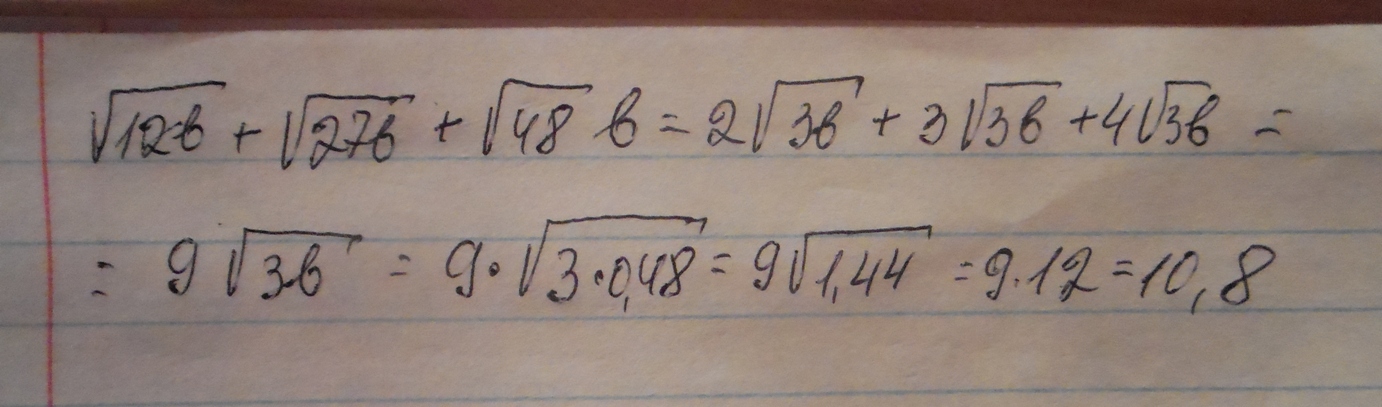 √12b + √27b + √48 b = 2√3b + 3√3b + 4√3b =
= 9√3b = 9·√3·0,48 = 9√1,44 = 9·12 = 10,8